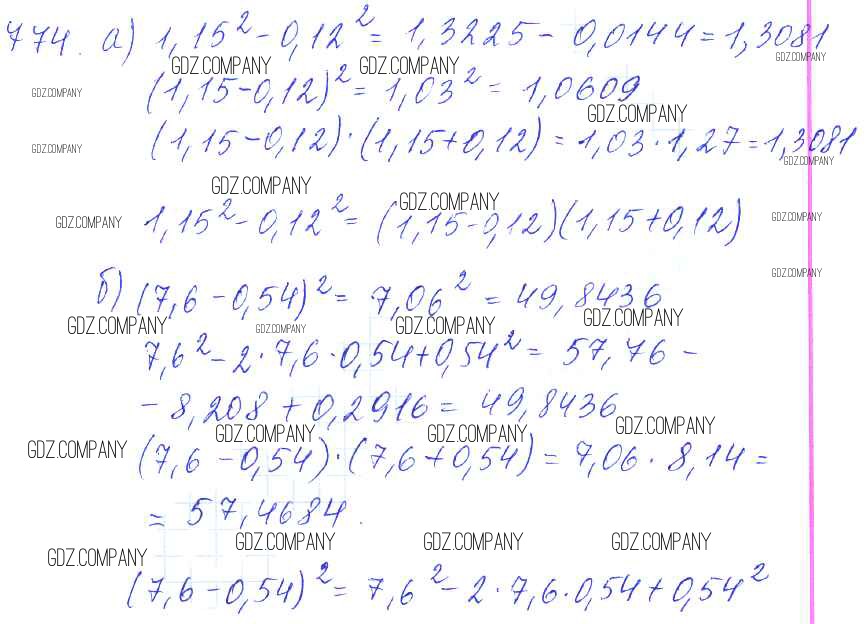 774. а) 1,15² - 0,12² = 1,3225 - 0,0144 = 1,3081
GDZ.COMPANY GDZ.COMPANY GDZ.COMPANY
GDZ.COMPANY (1,15 - 0,12)² = 1,03² = 1,0609
GDZ.COMPANY
GDZ.COMPANY (1,15 - 0,12) · (1,15 + 0,12) = 1,03 · 1,27 = 1,3081
GDZ.COMPANY
GDZ.COMPANY GDZ.COMPANY
GDZ.COMPANY 1,15² - 0,12² = (1,15 - 0,12)(1,15 + 0,12) GDZ.COMPANY
GDZ.COMPANY
б) (7,6 - 0,54)² = 7,06² = 49,8436
GDZ.COMPANY GDZ.COMPANY GDZ.COMPANY GDZ.COMPANY
7,6² - 2 · 7,6 · 0,54 + 0,54² = 57,76 -
- 8,208 + 0,2916 = 49,8436
GDZ.COMPANY GDZ.COMPANY GDZ.COMPANY
GDZ.COMPANY (7,6 - 0,54) · (7,6 + 0,54) = 7,06 · 8,14 =
= 57,4684.
GDZ.COMPANY GDZ.COMPANY GDZ.COMPANY
GDZ.COMPANY
(7,6 - 0,54)² = 7,6² - 2 · 7,6 · 0,54 + 0,54²